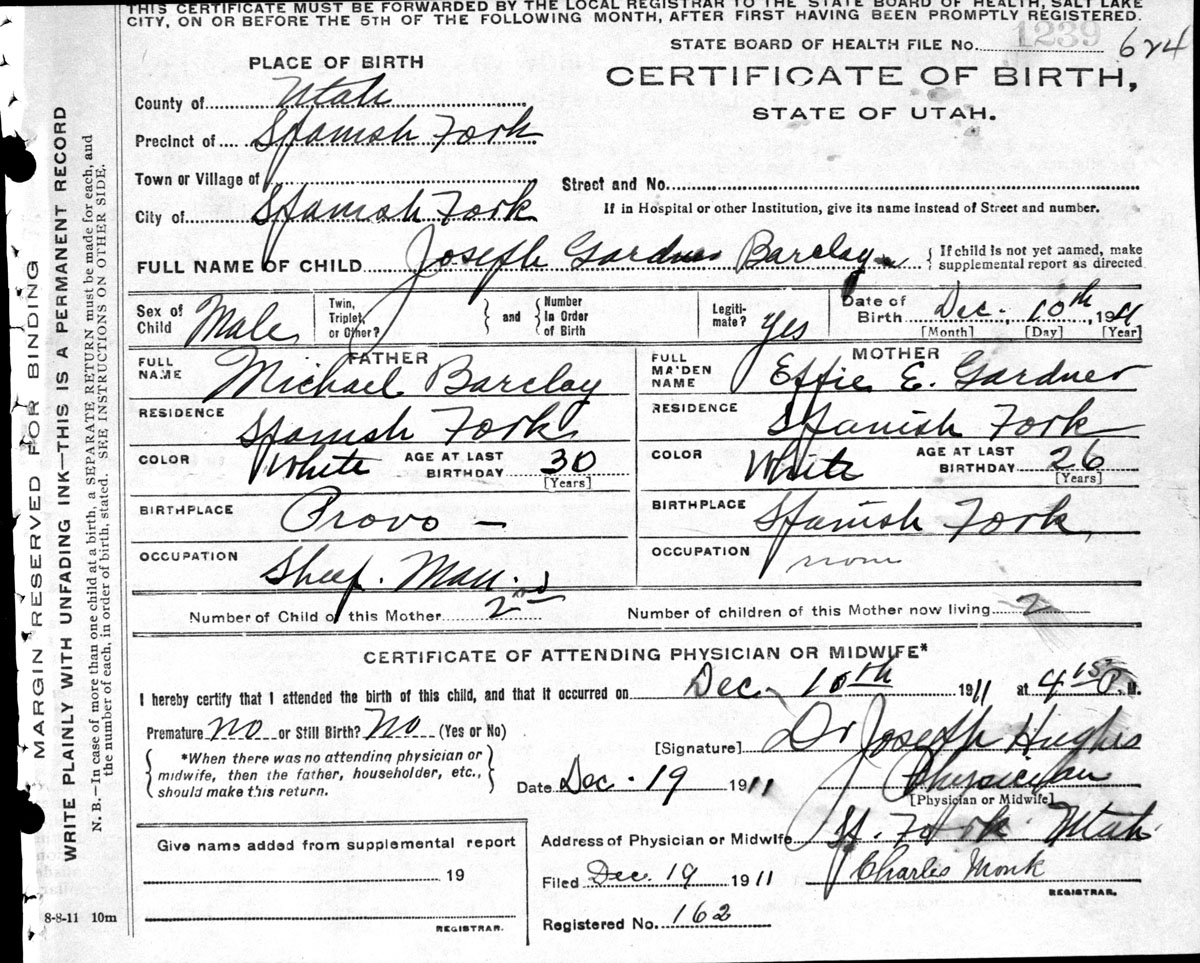 THIS CERTIFICATE MUST BE FORWARDED BY THE LOCAL REGISTRAR TO THE STATE BOARD OF HEALTH, SALT LAKE
CITY, ON OR BEFORE THE 5TH OF THE FOLLOWING MONTH, AFTER FIRST HAVING BEEN PROMPTLY REGISTERED.
STATE BOARD OF HEALTH FILE No. 1239 624
PLACE OF BIRTH
CERTIFICATE OF BIRTH,
STATE OF UTAH.
County of Utah
Precinct of Spanish Fork
Town or Village of
Street and No.
City of Spanish Fork
If in Hospital or other Institution, give its name instead of Street and number.
FULL NAME OF CHILD Joseph Gardner Barclay { If child is not yet named, make
supplemental report as directed
Sex of Child Male
Twin, Triplet, or Other? } and { Number In Order of Birth
Legiti-mate? Yes
Date of Birth Dec. 10th, 1911
[Month] [Day] [Year]
FATHER
FULL NAME Michael Barclay
RESIDENCE Spanish Fork
COLOR White AGE AT LAST BIRTHDAY 30
[Years]
BIRTHPLACE Provo —
OCCUPATION Sheep. Man.
MOTHER
FULL MAIDEN NAME Effie E. Gardner
RESIDENCE Spanish Fork
COLOR White AGE AT LAST BIRTHDAY 26
[Years]
BIRTHPLACE Spanish Fork,
OCCUPATION
Number of Child of this Mother 2nd Number of children of this Mother now living 2
CERTIFICATE OF ATTENDING PHYSICIAN OR MIDWIFE*
I hereby certify that I attended the birth of this child, and that it occurred on Dec. 10th 1911 at 4 15 P. M.
Premature No or Still Birth? No (Yes or No)
{ *When there was no attending physician or
midwife, then the father, householder, etc.,
should make this return. }
[Signature] Dr Joseph Hughes
Date Dec. 19 1911 Physician
[Physician or Midwife]
Address of Physician or Midwife Sp. Fork Utah
Filed Dec. 19 1911 Charles Monk
REGISTRAR.
Registered No. 162
Give name added from supplemental report
19
REGISTRAR.
8-8-11 10m
MARGIN RESERVED FOR BINDING
WRITE PLAINLY WITH UNFADING INK—THIS IS A PERMANENT RECORD
N. B.—In case of more than one child at a birth, a SEPARATE RETURN must be made for each, and
the number of each, in order of birth, stated. SEE INSTRUCTIONS ON OTHER SIDE.